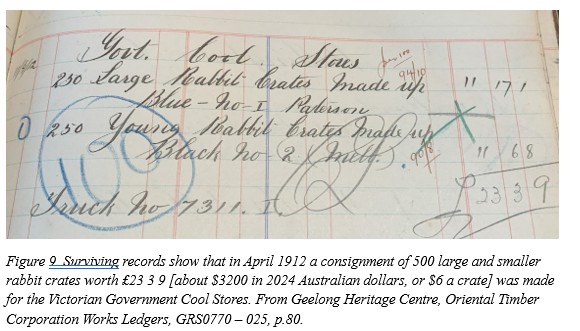 Govt. Cool Stores per 100
250 Large Rabbit Crates Made up 94/10 11 17 1
Blue - No - 1 Paterson
0 250 Young Rabbit Crates Made up 90/8 11 6 8
Black No - 2 Melb.
100
Truck No 7311. I £23 3 9
Figure 9 Surviving records show that in April 1912 a consignment of 500 large and smaller
rabbit crates worth £23 3 9 [about $3200 in 2024 Australian dollars, or $6 a crate] was made
for the Victorian Government Cool Stores. From Geelong Heritage Centre, Oriental Timber
Corporation Works Ledgers, GRS0770 – 025, p.80.